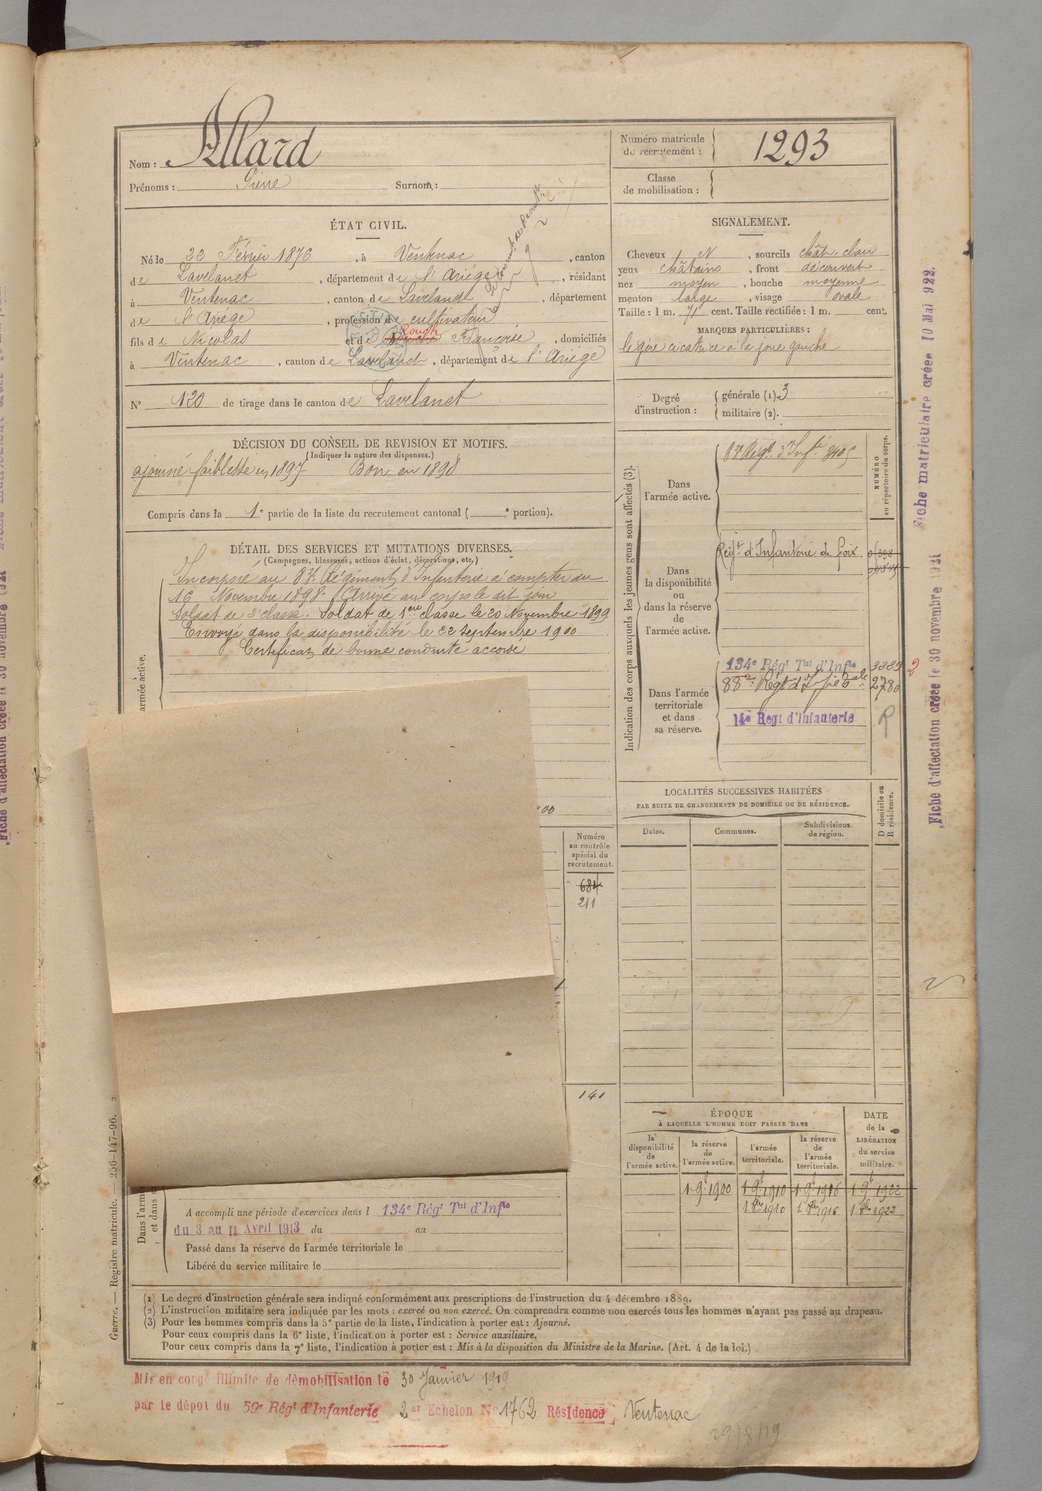 Nom : Allard
Prénoms : Pierre Surnom :
Numéro matricule du recrutement : 1293
Classe de mobilisation :
ÉTAT CIVIL.
Né le 22 Février 1876, à Ventenac, canton
de Lavelanet, département de l'Ariège, résidant
à Ventenac, canton de Lavelanet, département
de l'Ariège, profession de cultivateur
fils de Nicolas et de Rouch Françoise, domiciliés
à Ventenac, canton de Lavelanet, département de l'Ariège
N° 120 de tirage dans le canton de Lavelanet
SIGNALEMENT.
Cheveux N, sourcils chât. clair
yeux châtains, front découvert
nez moyen, bouche moyenne
menton large, visage ovale
Taille : 1 m. 71 cent. Taille rectifiée : 1 m. cent.
MARQUES PARTICULIÈRES :
légère cicatrice à la joue gauche
Degré d'instruction :
générale (1). 3
militaire (2).
DÉCISION DU CONSEIL DE REVISION ET MOTIFS.
(Indiquer la nature des dispenses.)
ajourné faiblesse en 1897 Bon en 1898
Compris dans la 1e partie de la liste du recrutement cantonal ( e portion).
DÉTAIL DES SERVICES ET MUTATIONS DIVERSES.
(Campagnes, blessures, actions d'éclat, décorations, etc.)
Incorporé au 83e Régiment d'Infanterie à compter du
16 Novembre 1898. Arrivé au corps le dit jour
Soldat de 2e classe. Soldat de 1ère classe le 20 Novembre 1899
Envoyé dans la disponibilité le 22 Septembre 1900
Certificat de bonne conduite accordé
armée active.
Indication des corps auxquels les jeunes gens sont affectés (3).
NUMÉRO au répertoire du corps.
Dans l'armée active.
Dans la disponibilité ou dans la réserve de l'armée active.
Régt d'Infanterie de foix
Dans l'armée territoriale et dans sa réserve.
134e Régt Tal d'Infie 3889
2780
14e Regt d'Infanterie R
2
LOCALITÉS SUCCESSIVES HABITÉES
PAR SUITE DE CHANGEMENTS DE DOMICILE OU DE RÉSIDENCE.
Dates. Communes. Subdivisions de région. D domicile ou R résidence.
00
Numéro au contrôle spécial du recrutement.
684
211
141
ÉPOQUE
À LAQUELLE L'HOMME DOIT PASSER DANS
la disponibilité de l'armée active. la réserve de l'armée active. l'armée territoriale. la réserve de l'armée territoriale.
DATE de la LIBÉRATION du service militaire.
1 9bre 1900 1 9bre 1910 1 9bre 1916 1 9bre 1922
1 8bre 1910 1 8bre 1916 1 8bre 1922
A accompli une période d'exercices dans l 134e Régt Tal d'Infie
du 3 au 11 Avril 1913 du au
Passé dans la réserve de l'armée territoriale le
Libéré du service militaire le
(1) Le degré d'instruction générale sera indiqué conformément aux prescriptions de l'instruction du 4 décembre 1889.
(2) L'instruction militaire sera indiquée par les mots : exercé ou non exercé. On comprendra comme non exercés tous les hommes n'ayant pas passé au drapeau.
(3) Pour les hommes compris dans la 5e partie de la liste, l'indication à porter est : Ajourné.
Pour ceux compris dans la 6e liste, l'indication à porter est : Service auxiliaire.
Pour ceux compris dans la 7e liste, l'indication à porter est : Mis à la disposition du Ministre de la Marine. (Art. 4 de la loi.)
Guerre. — Registre matricule. 256-147-96.
Mis en congé illimité de démobilisation le 30 Janvier 1919
par le dépot du 59e Régt d'Infanterie 2e Echelon N° 1762 Résidence Ventenac
29/8/19
Fiche matriculaire créée 10 Mai 922.
Fiche d'affectation créée le 30 novembre 1921